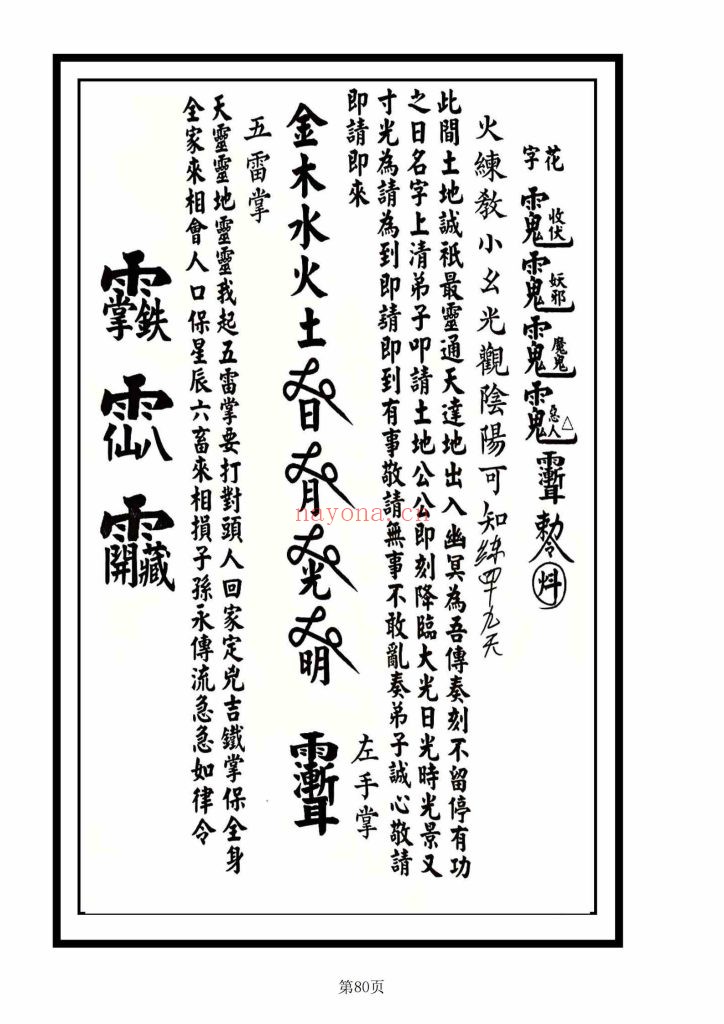 花字
收伏
妖邪
魔鬼
急人
勅令
火練教小幺光觀陰陽可知練四十九天
此間土地誠祇最靈通天達地出入幽冥為吾傳奏刻不留停有功
之日名字上清弟子叩請土地公公即刻降臨大光日光時光景又
寸光為請為到即請即到有事敬請無事不敢亂奏弟子誠心敬請
即請即來
左手掌
金木水火土日月光明
五雷掌
天靈靈地靈靈我起五雷掌要打對頭人回家定兇吉鐵掌保全身
全家來相會人口保星辰六畜來相損子孫永傳流急急如律令
nayona.cn
第80页